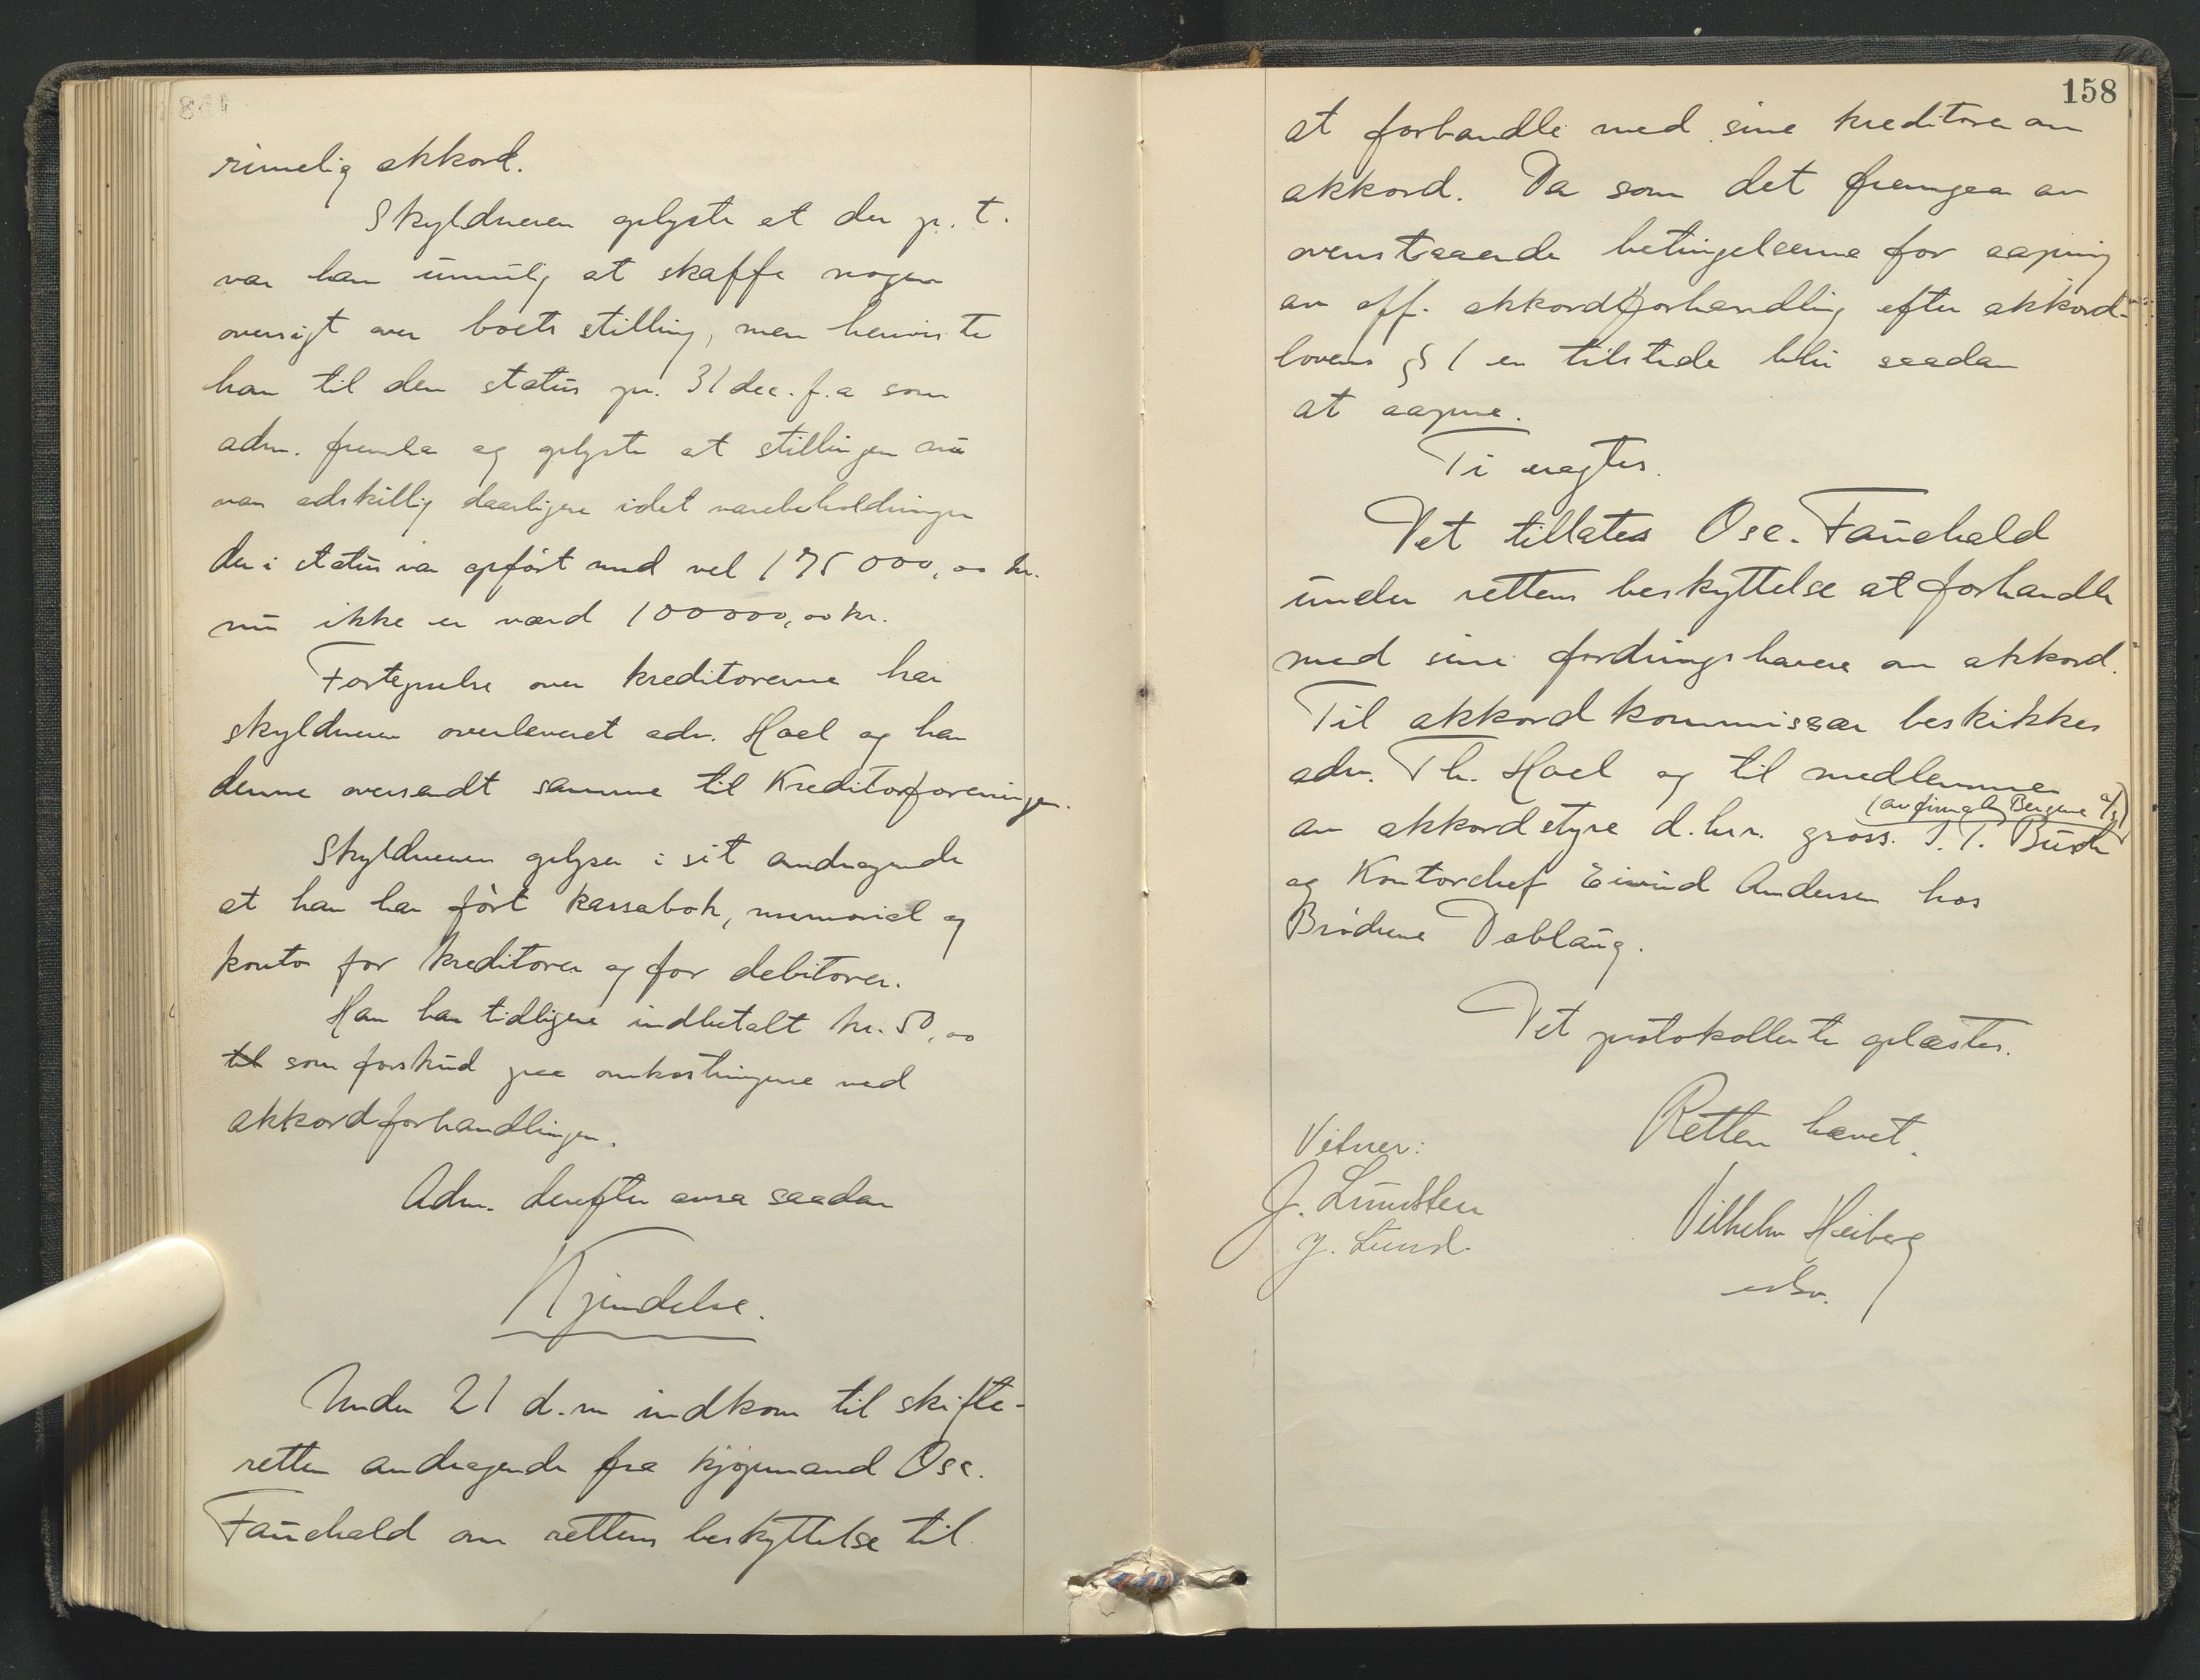 rimelig akkord.
Skyldneren oplyste at der p. t.
var ham umulig at skaffe nogen
oversigt over boets stilling, men henviste
han til den status pr. 31 dec. f.a som
adm. fremla og oplyste at stillingen nu
var adskillig daarligere idet varebeholdningen
der i status var opført med vel 175 000,00 kr.
nu ikke er værd 100000,00 kr.
Fortegnelse over kreditorerne har
skyldneren overleveret adv. Hoel og har
denne oversendt samme til Kreditorforeningen.
Skyldneren oplyser i sit andragende
at han har ført kassabok, memorial og
konto for kreditorer og for debitorer.
Han har tidligere indbetalt kr. 50,00
til som forskud paa omkostningene ved
akkordforhandlingen.
Adm. derefter avsa saadan
Kjendelse.
Under 21 d.m indkom til skifte-
retten andragende fra kjøpmand Osc.
Fauchald om rettens beskyttelse til
158
at forhandle med sine kreditorer om
akkord. Da som det fremgaar av
ovenstaaende betingelserne for aapning
av off. akkordforhandling efter akkord-
lovens § 1 er tilstede blir saadan
at aapne.
Ti eragtes.
Det tillates Osc. Fauchald
under rettens beskyttelse at forhandle
med sine fordringshavere om akkord.
Til akkordkommissær beskikkes
adv. Th. Hoel og til medlemmer
(av firmaet Bergene a/s)
av akkordstyre d.hrr. gross. I. T. Busch
og Kontorchef Eivind Andersen hos
Brødrene Dobloug.
Det protokollerte oplæstes.
Retten hævet.
Vitner:
J. Lundsten
J. Lund.
Vilhelm Heiberg